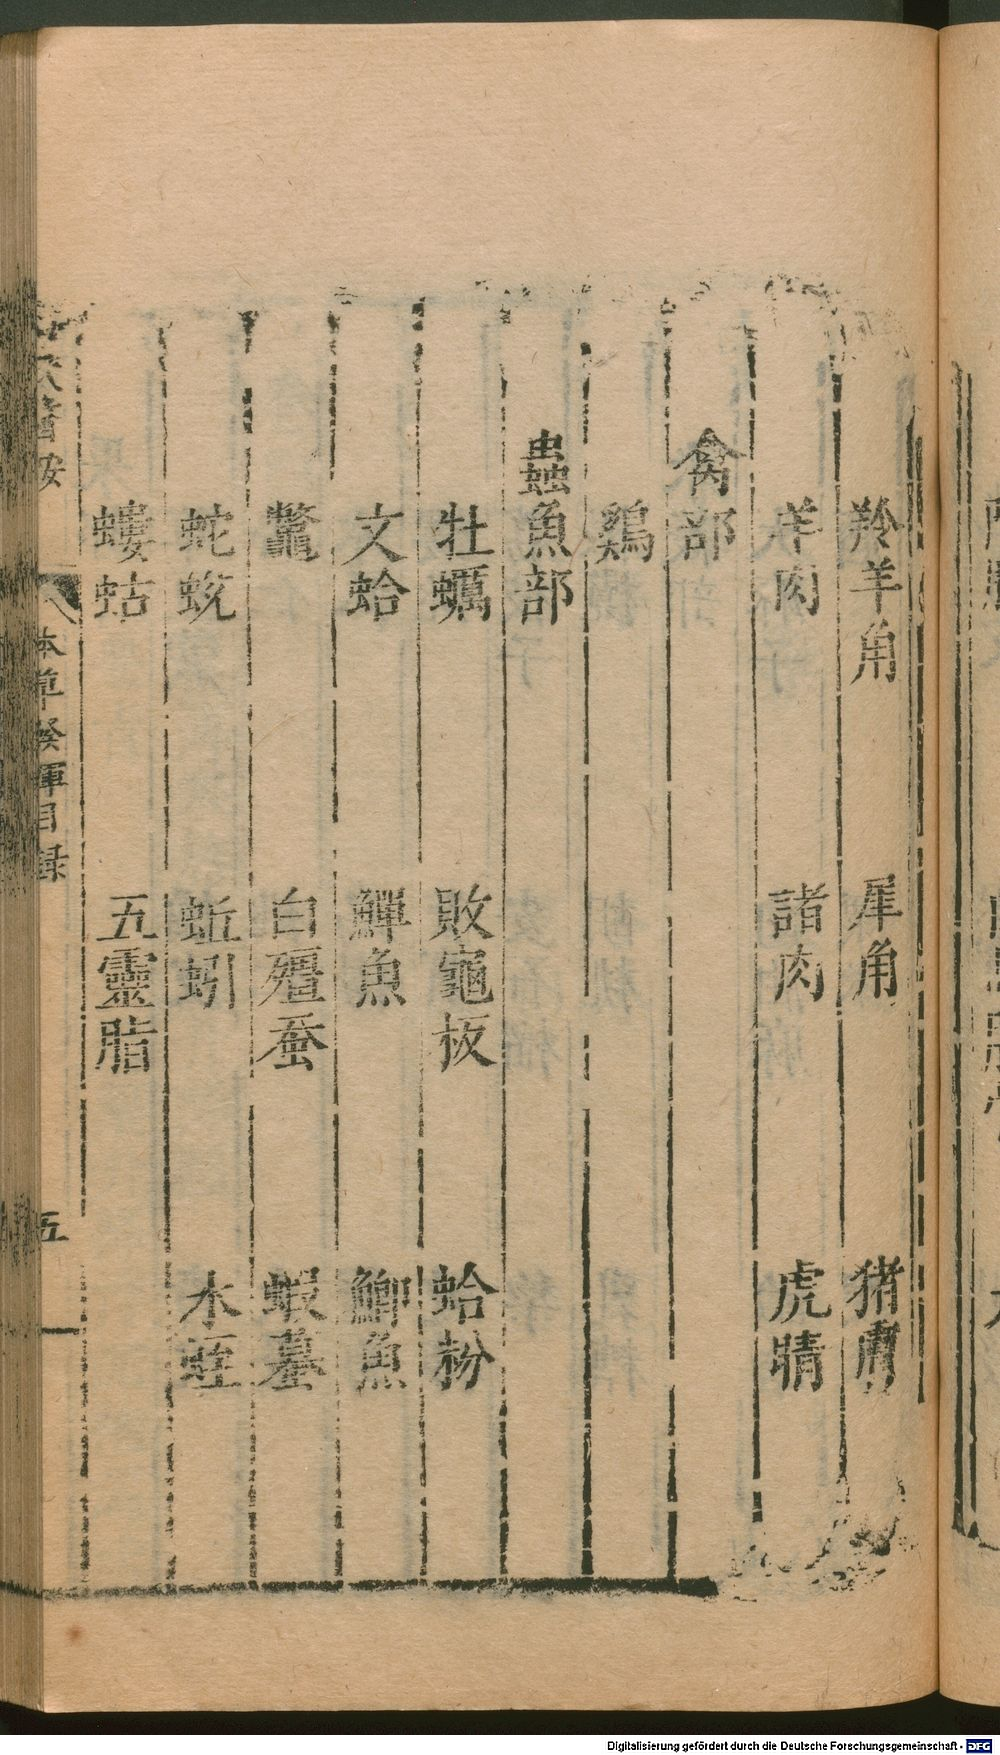 羚羊角 犀角 猪膚
羊肉 諸肉 虎睛
禽部
鷄
蟲魚部
牡蠣 敗龜板 蛤粉
文蛤 鱓魚 鯽魚
鱉 白殭蚕 蝦蟇
蛇蛻 蚯蚓 水蛭
螻蛄 五靈脂
本草發揮目録
五
Digitalisierung gefördert durch die Deutsche Forschungsgemeinschaft - DFG